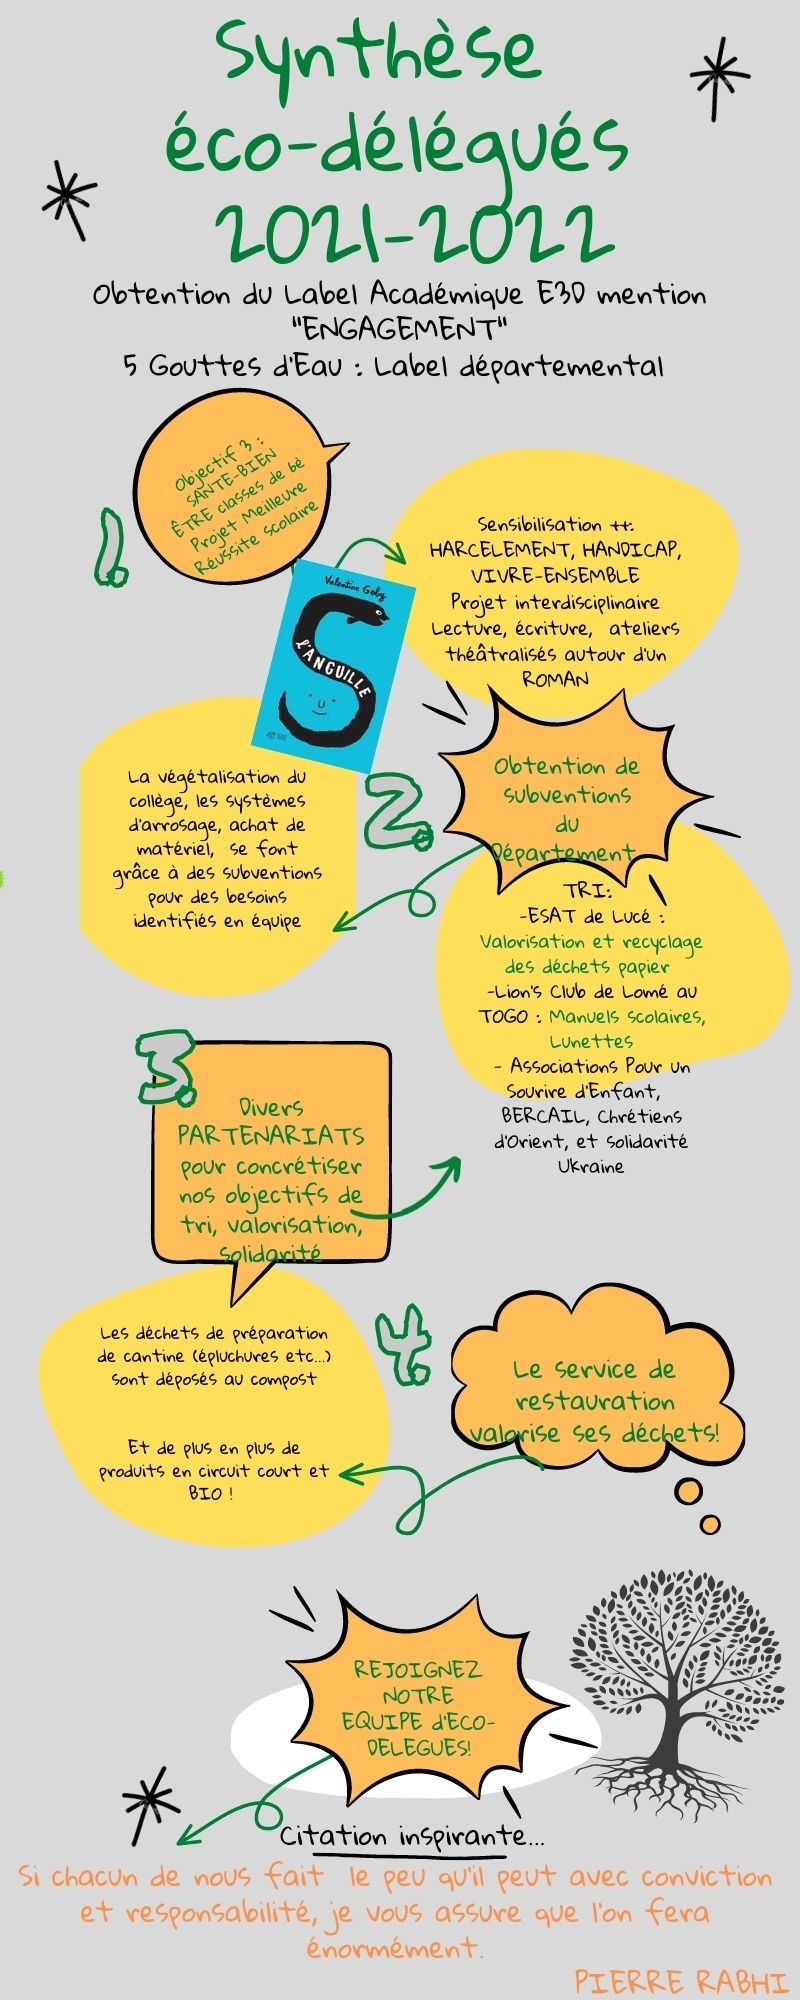 Synthèse
éco-délégués
2021-2022
Obtention du Label Académique E3D mention
"ENGAGEMENT"
5 Gouttes d'Eau : Label départemental
1.
Objectif 3 :
SANTE-BIEN
ÊTRE classes de 6è
Projet Meilleure
Réussite scolaire
Valentine Goby
L'ANGUILLE
Sensibilisation ++:
HARCELEMENT, HANDICAP,
VIVRE-ENSEMBLE
Projet interdisciplinaire
Lecture, écriture, ateliers
théâtralisés autour d'un
ROMAN
2.
Obtention de
subventions
du
Département
La végétalisation du
collège, les systèmes
d'arrosage, achat de
matériel, se font
grâce à des subventions
pour des besoins
identifiés en équipe
TRI:
-ESAT de Lucé :
Valorisation et recyclage
des déchets papier
-Lion's Club de Lomé au
TOGO : Manuels scolaires,
Lunettes
- Associations Pour un
Sourire d'Enfant,
BERCAIL, Chrétiens
d'Orient, et Solidarité
Ukraine
3.
Divers
PARTENARIATS
pour concrétiser
nos objectifs de
tri, valorisation,
solidarité
4.
Le service de
restauration
valorise ses déchets!
Les déchets de préparation
de cantine (épluchures etc...)
sont déposés au compost
Et de plus en plus de
produits en circuit court et
BIO !
REJOIGNEZ
NOTRE
EQUIPE d'ECO-
DELEGUES!
Citation inspirante...
Si chacun de nous fait le peu qu'il peut avec conviction
et responsabilité, je vous assure que l'on fera
énormément.
PIERRE RABHI